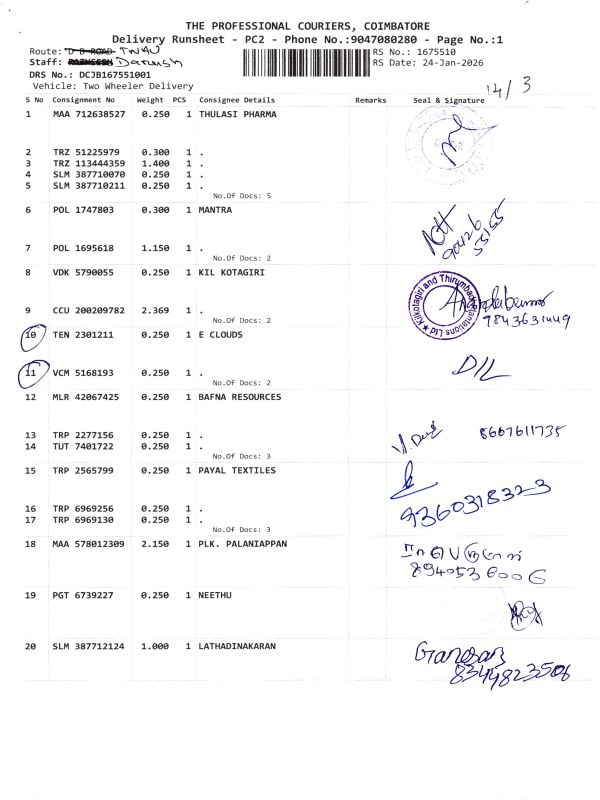 THE PROFESSIONAL COURIERS, COIMBATORE
Delivery Runsheet - PC2 - Phone No.:9047080280 - Page No.:1
Route: D B ROAD TWAU
RS No.: 1675510
Staff: Danush
RS Date: 24-Jan-2026
DRS No.: DCJB167551001
Vehicle: Two Wheeler Delivery
14/3
S No Consignment No Weight PCS Consignee Details Remarks Seal & Signature
1 MAA 712638527 0.250 1 THULASI PHARMA
2 TRZ 51225979 0.300 1 .
3 TRZ 113444359 1.400 1 .
4 SLM 387710070 0.250 1 .
5 SLM 387710211 0.250 1 .
No.Of Docs: 5
6 POL 1747803 0.300 1 MANTRA
90426
55155
7 POL 1695618 1.150 1 .
No.Of Docs: 2
8 VDK 5790055 0.250 1 KIL KOTAGIRI
Kilkotagiri and Thirumbadi Plantations Ltd
9843631449
9 CCU 200209782 2.369 1 .
No.Of Docs: 2
10 TEN 2301211 0.250 1 E CLOUDS
D/L
11 VCM 5168193 0.250 1 .
No.Of Docs: 2
12 MLR 42067425 0.250 1 BAFNA RESOURCES
8667611735
13 TRP 2277156 0.250 1 .
14 TUT 7401722 0.250 1 .
No.Of Docs: 3
15 TRP 2565799 0.250 1 PAYAL TEXTILES
9360318323
16 TRP 6969256 0.250 1 .
17 TRP 6969130 0.250 1 .
No.Of Docs: 3
18 MAA 578012309 2.150 1 PLK. PALANIAPPAN
8940536006
19 PGT 6739227 0.250 1 NEETHU
20 SLM 387712124 1.000 1 LATHADINAKARAN
Ganesan
8344823506